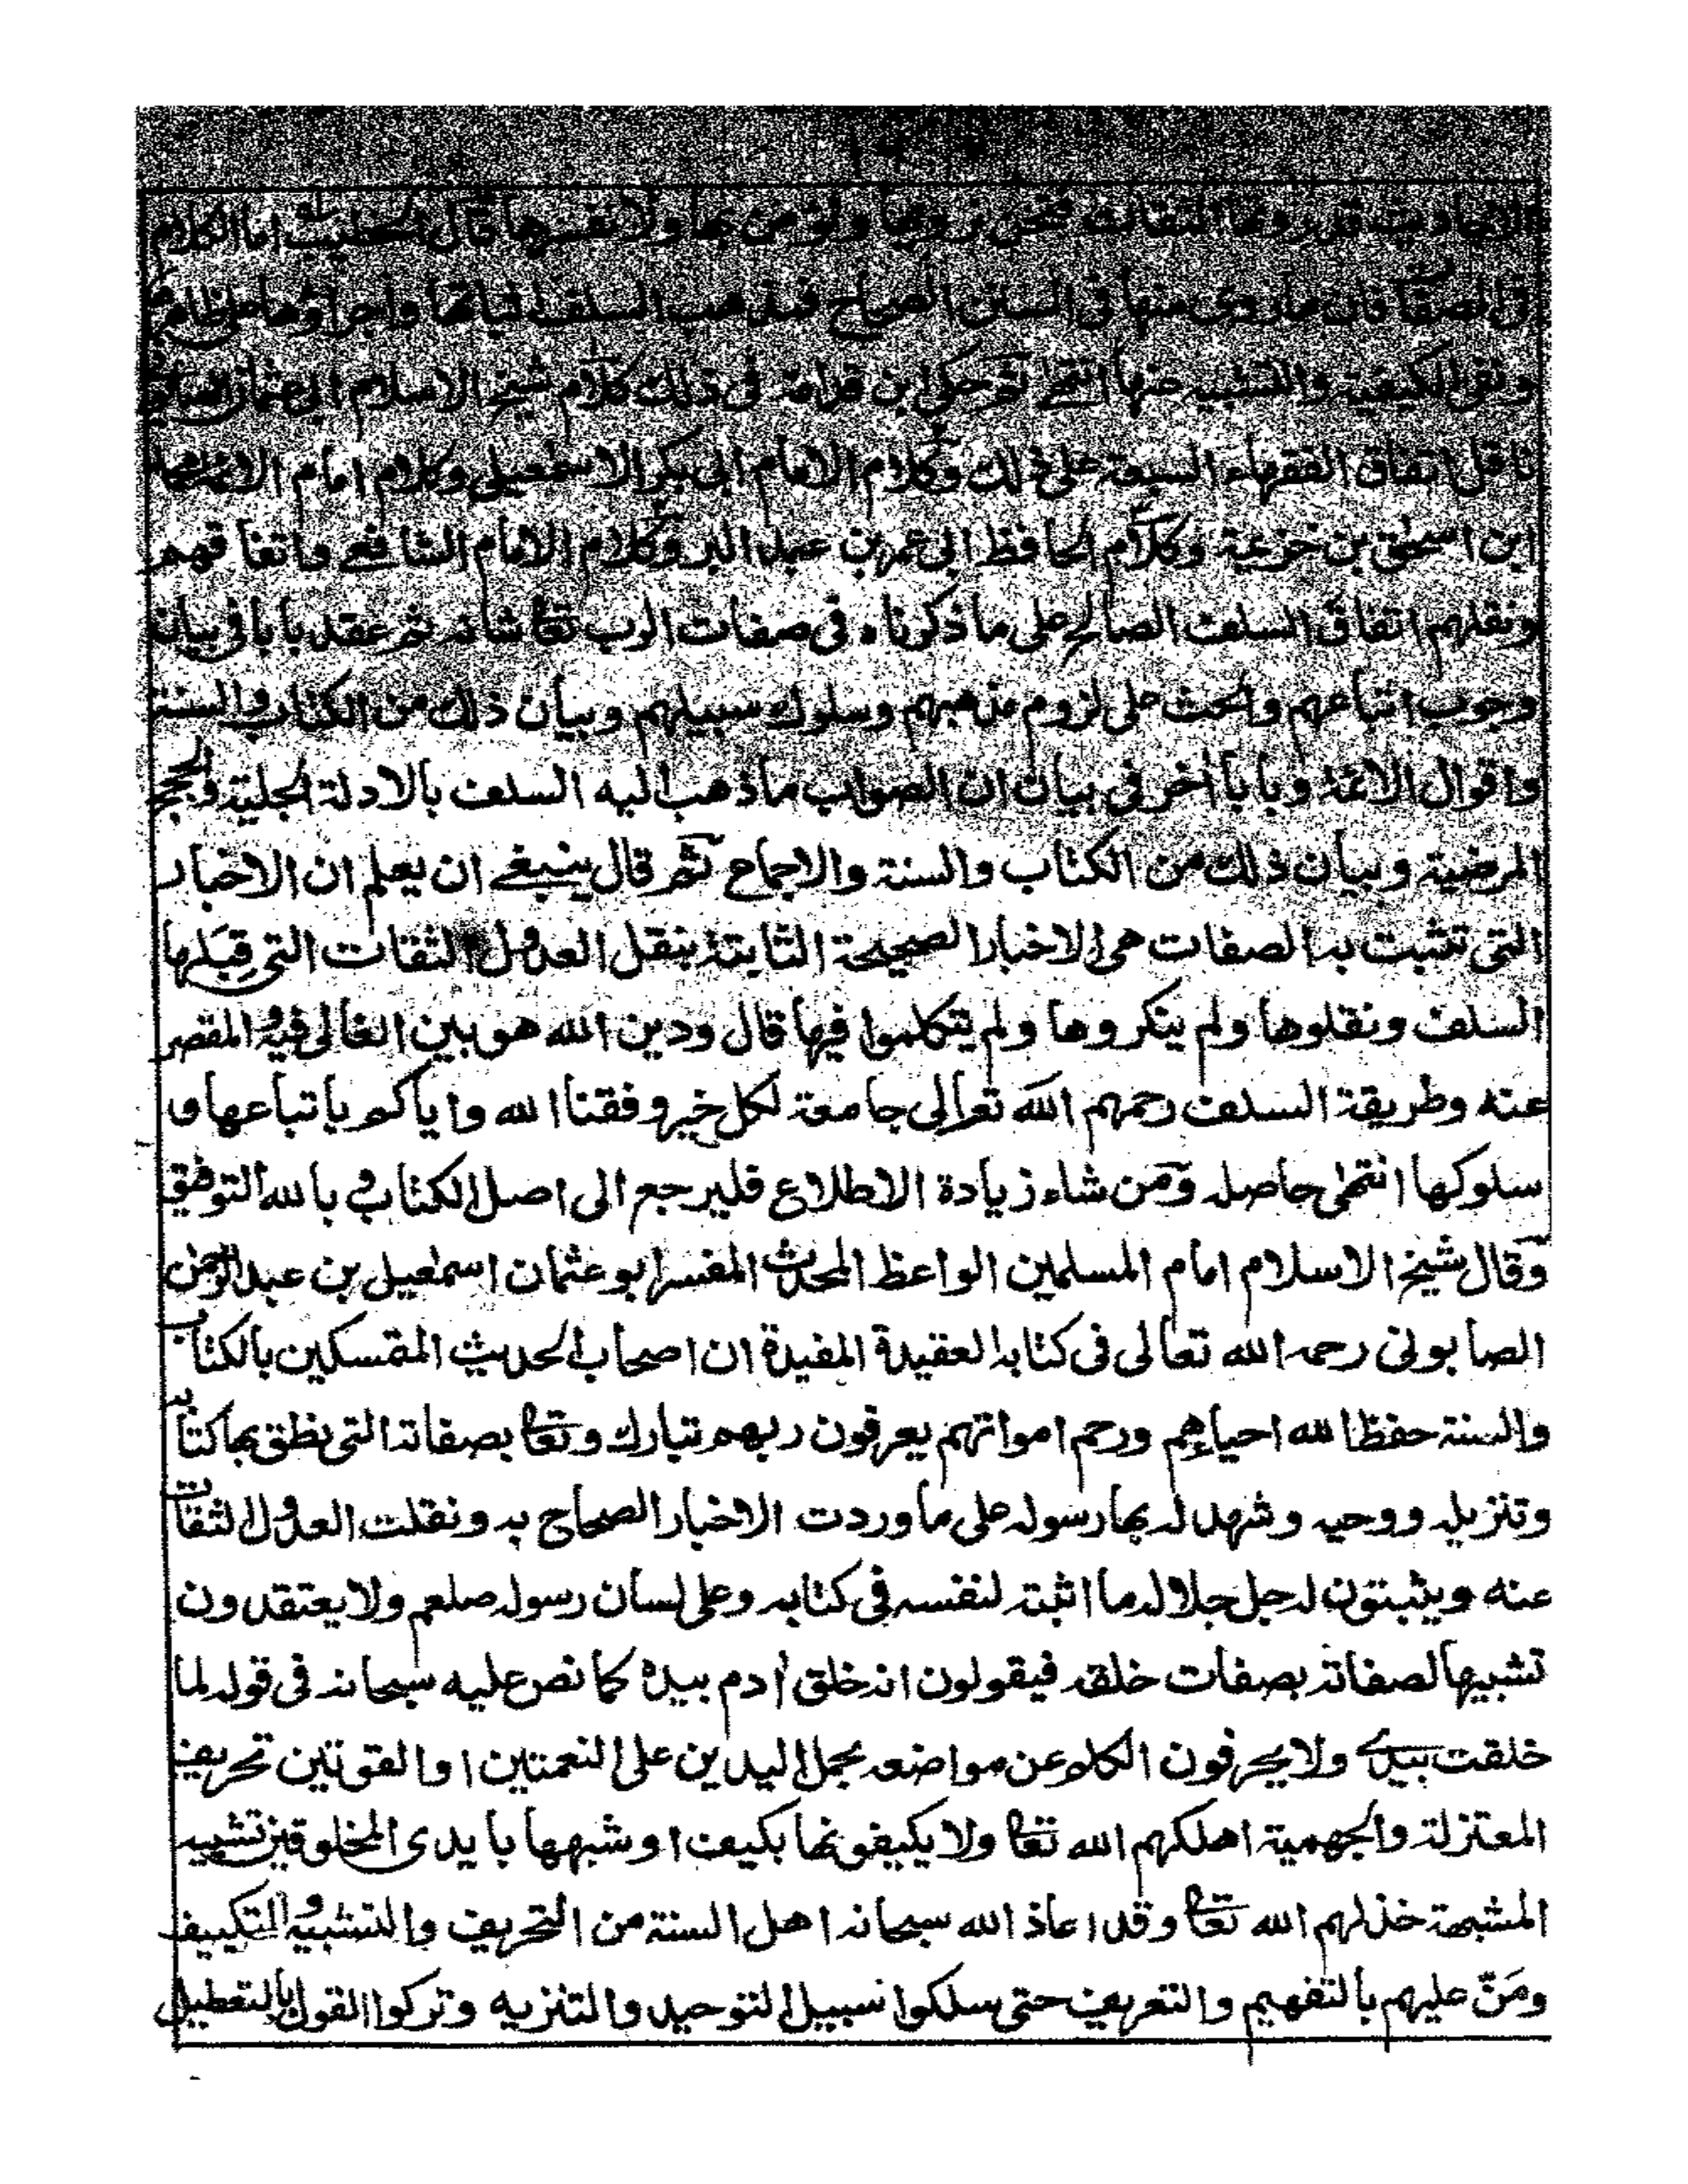 الاحاديث قد رويها الثقات فنحن نرويها ونؤمن بها ولا نفسرها قال الخطيب اما الكلام
فى الصفا فان ما روى منها فى السنن الصحاح فمذهب السلف اثباتها واجراؤها على ظاهر
ونفى الكيفية والتشبيه عنها انتهى ثم حكى ابن قدامة فى ذلك كلام شيخ الاسلام ابى عثمان
ناقل اتفاق الفقهاء السبعة على ذلك وكلام الامام ابى بكر الاسمعيلى وكلام امام الائمة
ابن اسحق بن خزيمة وكلام الحافظ ابى عمر بن عبد البر وكلام الامام الشافعى واتفاقهم
ونقلهم اتفاق السلف الصالح على ما ذكرناه فى صفات الرب تعا شانه ثم عقد بابا فى بيان
وجوب اتباعهم والحث على لزوم مذهبهم وسلوك سبيلهم وبيان ذلك من الكتاب والسنة
واقوال الائمة وبابا اخر فى بيان ان الصواب ما ذهب اليه السلف بالادلة الجلية والحجج
المرضية وبيان ذلك من الكتاب والسنة والاجماع ثم قال ينبغى ان يعلم ان الاخبار
التى تثبت به الصفات هى الاخبار الصحيحة الثابتة بنقل العدول الثقات التى قبلها
السلف ونقلوها ولم ينكروها ولم يتكلموا فيها قال ودين الله هو بين الغالى فيه والمقصر
عنه وطريقة السلف رحمهم الله تعالى جامعة لكل خير وفقنا الله واياكم باتباعها و
سلوكها انتهى حاصله ومن شاء زيادة الاطلاع فليرجع الى اصل الكتاب و بالله التوفيق
وقال شيخ الاسلام امام المسلمين الواعظ المحدث المفسر ابو عثمان اسمعيل بن عبد الرحمن
الصابونى رحمه الله تعالى فى كتابه العقيدة المفيدة ان اصحاب الحديث المتمسكين بالكتاب
والسنة حفظ الله احياءهم ورحم امواتهم يعرفون ربهم تبارك وتعا بصفاته التى نطق بها كتابه
وتنزيله ووحيه وشهد له بها رسوله على ما وردت الاخبار الصحاح به ونقلت العدول الثقات
عنه ويثبتون له جل جلاله ما اثبته لنفسه فى كتابه وعلى لسان رسوله صلعم ولا يعتقدون
تشبيها لصفاته بصفات خلقه فيقولون انه خلق ادم بيده كما نص عليه سبحانه فى قوله لما
خلقت بيدى ولا يحرفون الكلام عن مواضعه بحمل اليدين على النعمتين او القوتين تحريف
المعتزلة والجهمية اهلكهم الله تعا ولا يكيفونها بكيف او شبهها بايدى المخلوقين تشبيه
المشبهة خذلهم الله تعا وقد اعاذ الله سبحانه اهل السنة من التحريف والتشبيه والتكييف
ومَنّ عليهم بالتفهيم والتعريف حتى سلكوا سبيل التوحيد والتنزيه وتركوا القول بالتعطيل